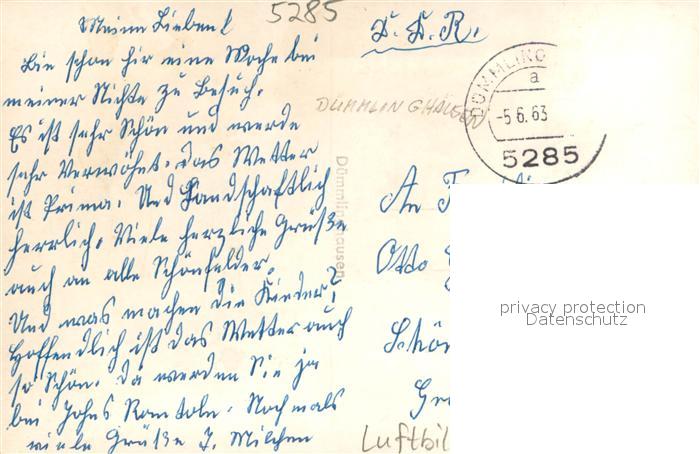 5285
Meine Lieben!
D. D. R.
Bin schon hir eine Woche bei
meiner Nichte zu Besuch.
Es ist sehr Schön und werde
sehr Verwöhnt. das Wetter
ist Prima. Und Landschaftlich
herrlich. Viele herzliche Grüße
auch an alle Schönfelder.
Und was machen die Kinder?
Hoffendlich ist das Wetter auch
so Schön. Da werden Sie ja
bei Johns
Nochmals
viele Grüße
DÜMMLINGHAUSEN
DÜMMLINGHAUSEN
a
-5.6.63
5285
Dümmlinghausen
An
Otto
Schön
Luftbil
privacy protection
Datenschutz